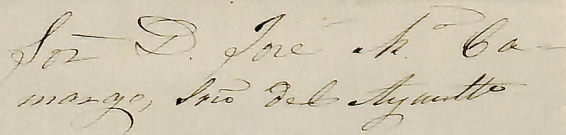 Sor. D. José M.ª Ca-
margo, Srio del Ayuntto